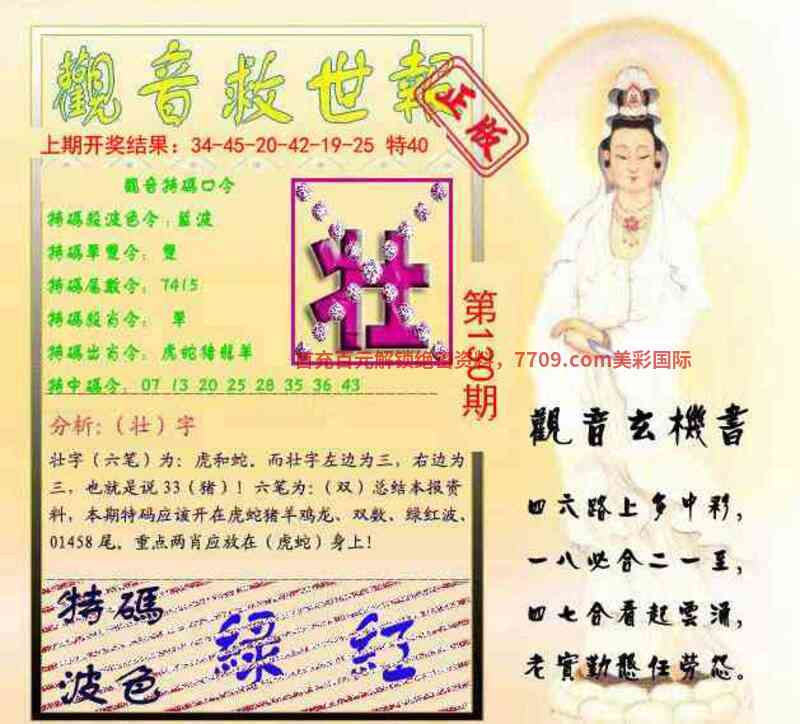 觀音救世報
正版
上期开奖结果：34-45-20-42-19-25 特40
觀音特碼口令
特碼殺波色令：藍波
特碼單雙令：雙
特碼尾數令：7415
特碼殺肖令： 單
特碼出肖令：虎蛇猪龍羊
特中碼令：07 13 20 25 28 35 36 43
壮
首充百元解锁绝密资料，7709.com美彩国际
第130期
分析：（壮）字
壮字（六笔）为：虎和蛇。而壮字左边为三，右边为
三，也就是说33（猪）！六笔为：（双）总结本报资
料，本期特码应该开在虎蛇猪羊鸡龙、双数、绿红波、
01458尾。重点两肖应放在（虎蛇）身上！
特碼
波色
綠 紅
觀音玄機書
四六路上多中彩，
一八必合二一至，
四七合看起雲湧，
老實勤懇任勞怨。